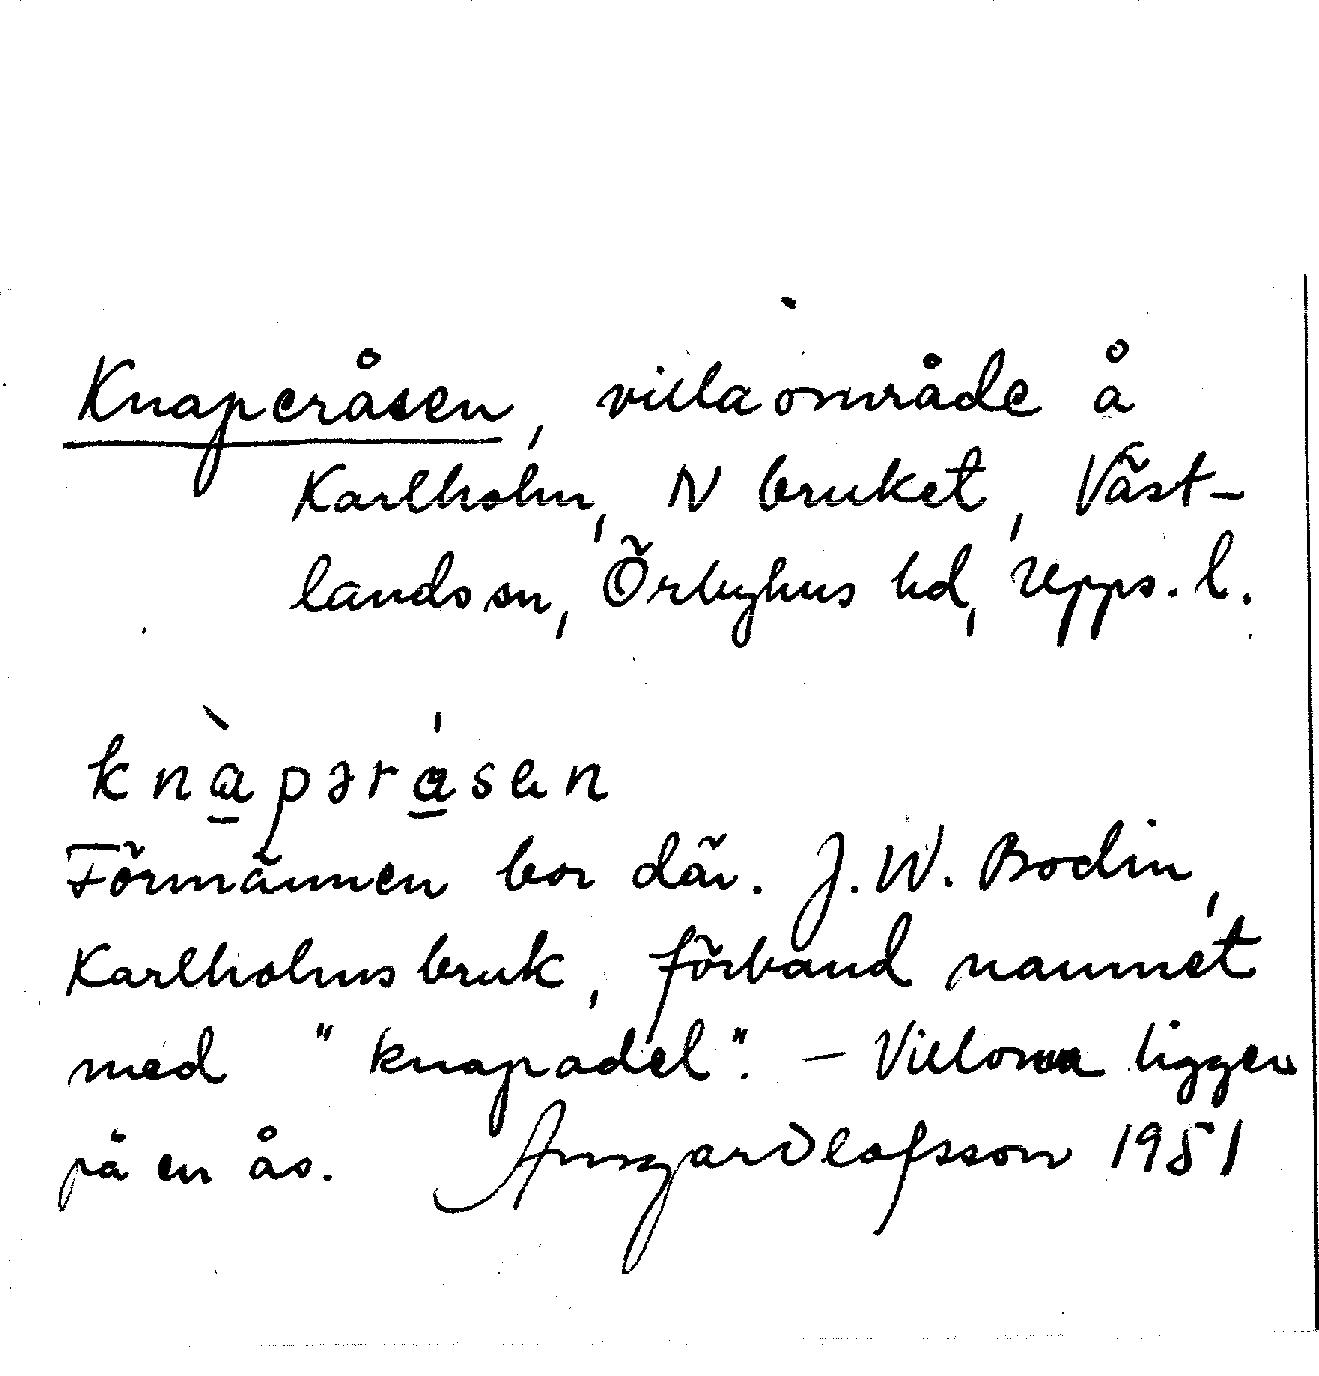 Knaperåsen, villaområde å
Karlholm, N bruket, Väst-
lands sn, Örbyhus hd, Upps. l.
knàpərǻsen
Förmännen bor där. J. W. Bodin,
Karlholmsbruk, förband namnet
med "knapadel". – Villorna ligger
på en ås. Ansgar Olofsson 1951